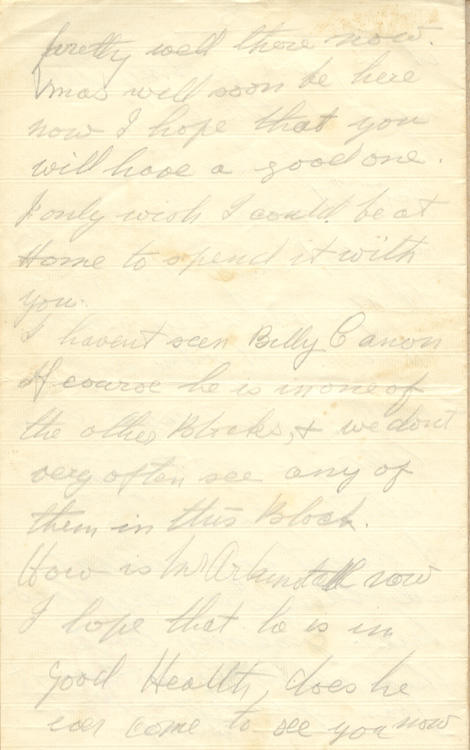 pretty well there now.
Xmas will soon be here
now I hope that you
will have a good one.
I only wish I could be at
Home to spend it with
you.
I havent seen Billy Canon
Of course he is in one of
the other Blocks, & we dont
very often see any of
them in this Block.
How is Mr now
I hope that he is in
good Health, does he
ever come to see you now